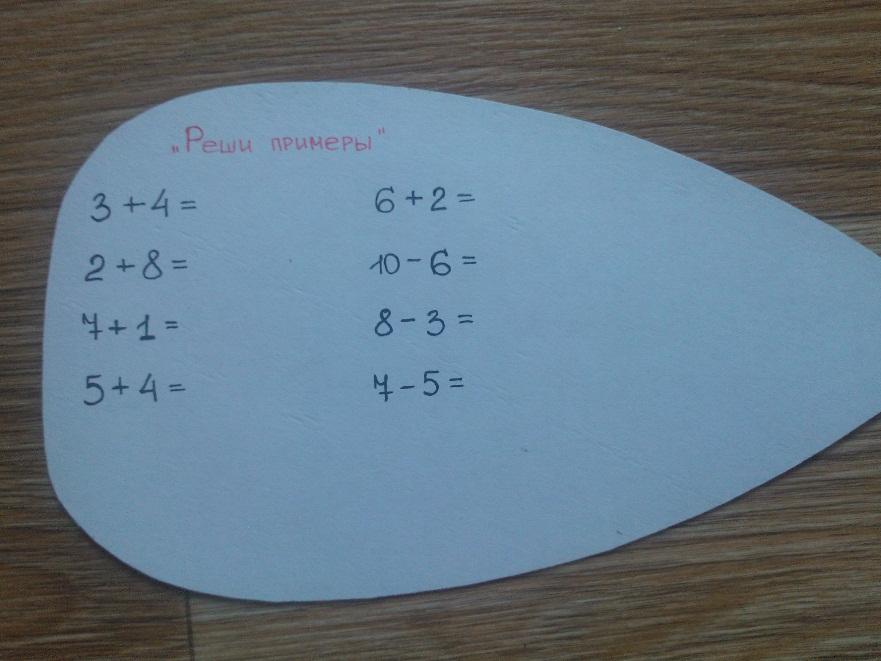 „Реши примеры"
3+4= 6+2=
2+8= 10-6=
7+1= 8-3=
5+4= 7-5=